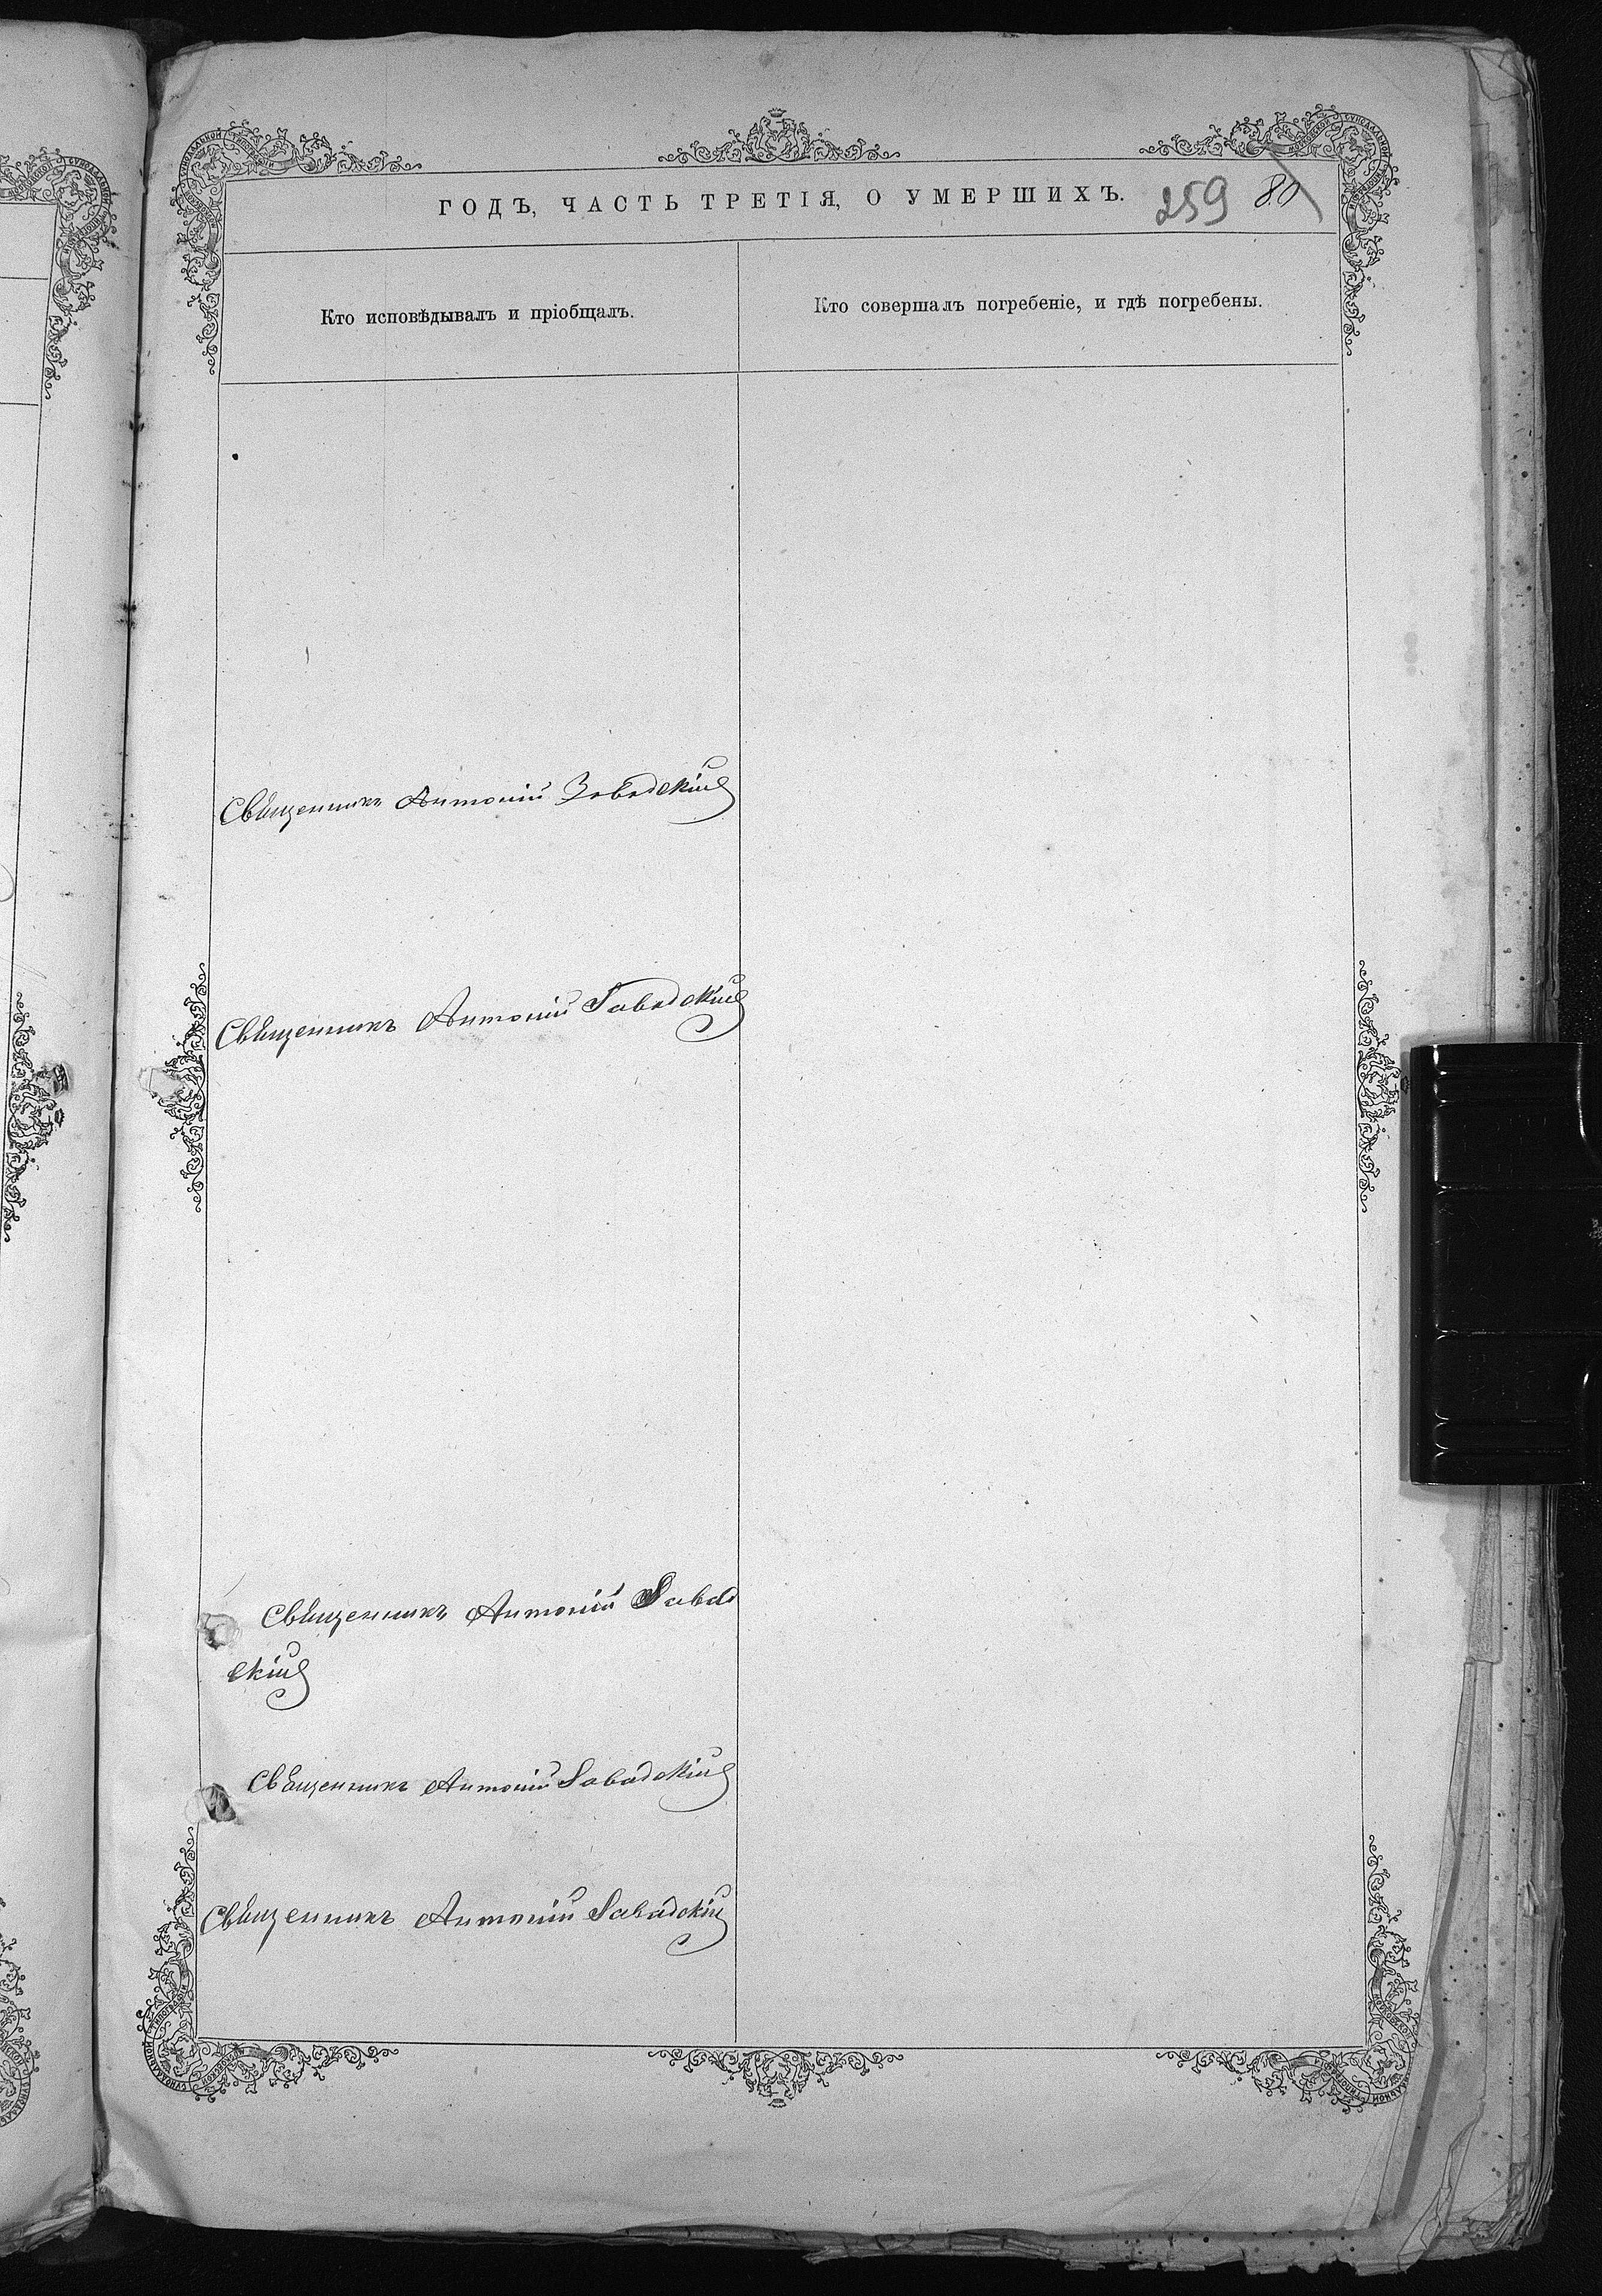 ГОДЪ, ЧАСТЬ ТРЕТІЯ, О УМЕРШИХЪ.
259 80
Кто исповѣдывалъ и пріобщалъ.
Кто совершалъ погребеніе, и гдѣ погребены.
Священникъ Антоній Завадскій
Священникъ Антоній Завадскій
Священникъ Антоній Завад
скій
Священникъ Антоній Завадскій
Священникъ Антоній Завадскій